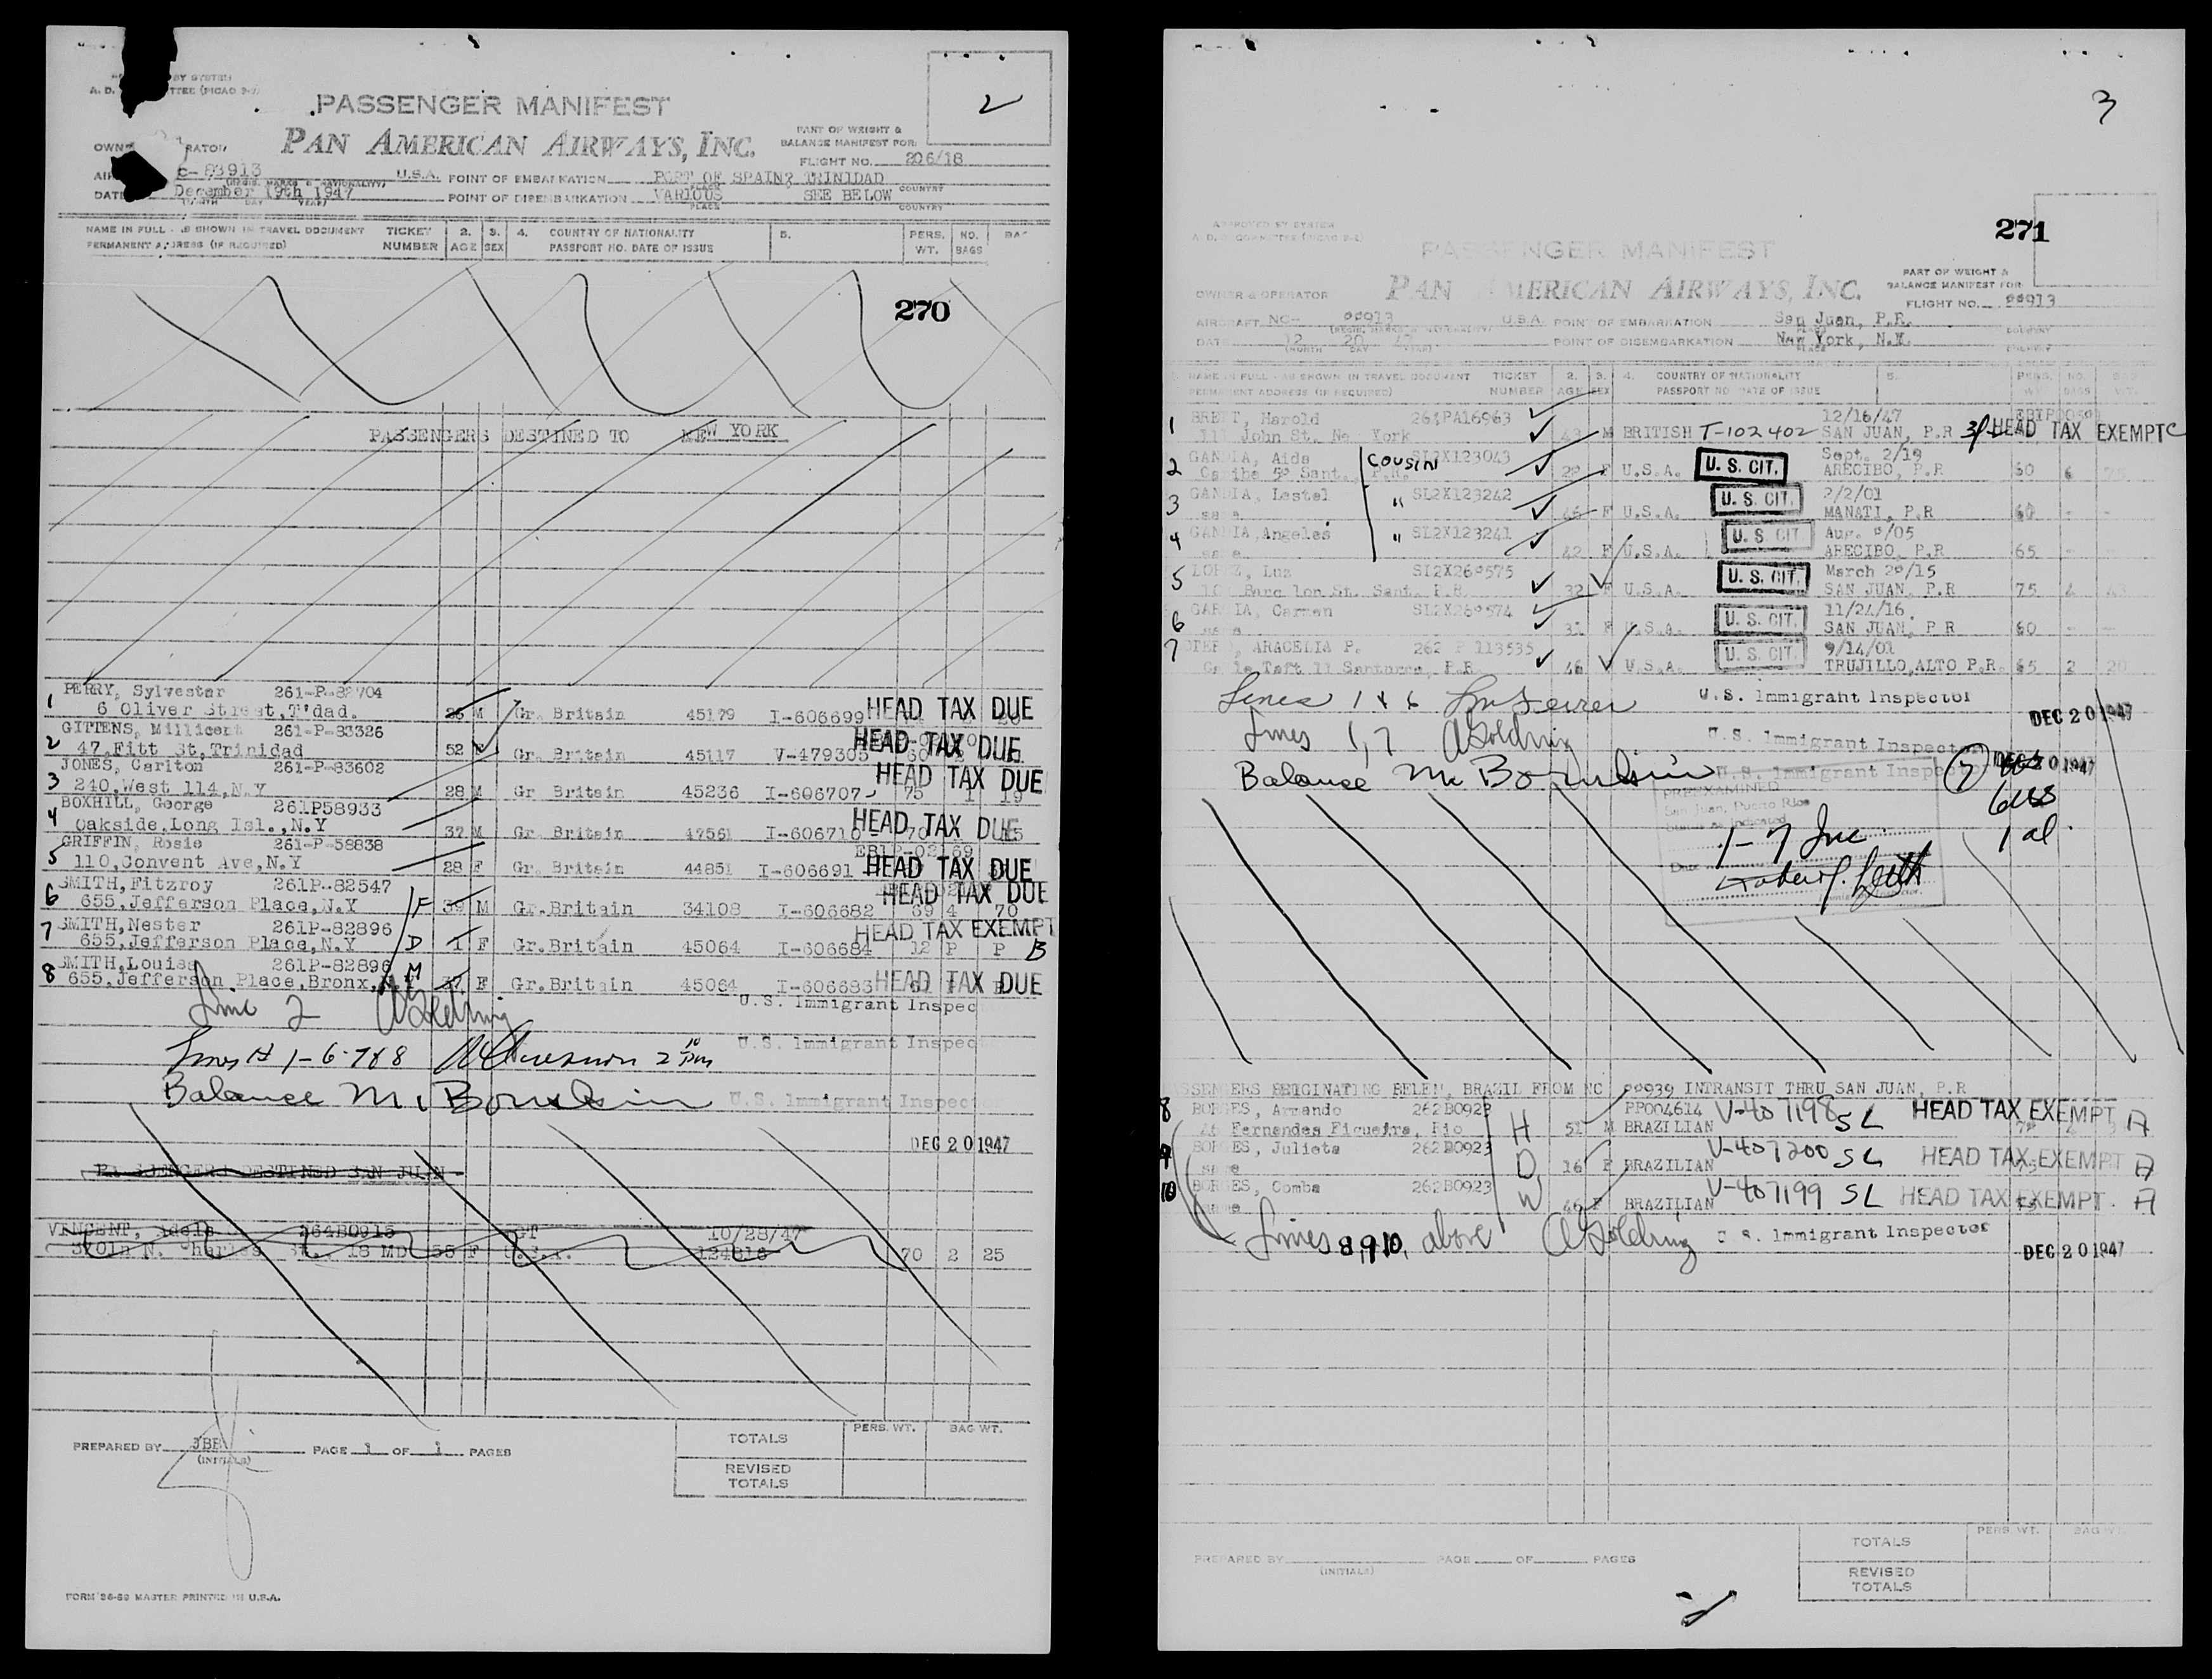 2
PASSENGER MANIFEST
PAN AMERICAN AIRWAYS, INC.
PART OF WEIGHT &
BALANCE MANIFEST FOR:
FLIGHT NO. 206/18
C-88913 U.S.A. POINT OF EMBARKATION PORT OF SPAIN? TRINIDAD
PLACE COUNTRY
DATE December 19th 1947 POINT OF DISEMBARKATION VARIOUS SEE BELOW
PLACE COUNTRY
NAME IN FULL - AS SHOWN IN TRAVEL DOCUMENT TICKET 2. 3. 4. COUNTRY OF NATIONALITY 5. PERS. NO.
PERMANENT ADDRESS (IF REQUIRED) NUMBER AGE SEX PASSPORT NO. DATE OF ISSUE WT. BAGS
270
PASSENGERS DESTINED TO NEW YORK
1 PERRY, Sylvester 261-P-82704
6 Oliver Street, T'dad. M Gr. Britain 45179 I-606699 HEAD TAX DUE
2 GITTENS, Millicent 261-P-83326
47, Fitt St, Trinidad 52 Gr. Britain 45117 V-479305 HEAD TAX DUE
3 JONES, Carlton 261-P-83602
240, West 114, N.Y 28 M Gr Britain 45236 I-606707 75 1 19 HEAD TAX DUE
4 BOXHILL, George 261P58933
Oakside, Long Isl., N.Y 37 M Gr. Britain 47561 I-606710 HEAD TAX DUE
5 GRIFFIN, Rosie 261-P-58838
110, Convent Ave, N.Y 28 F Gr. Britain 44851 I-606691 HEAD TAX DUE
6 SMITH, Fitzroy 261P-82547
655, Jefferson Place, N.Y F M Gr. Britain 34108 I-606682 69 4 70 HEAD TAX DUE
7 SMITH, Nester 261P-82896
655, Jefferson Place, N.Y D 1 F Gr. Britain 45064 I-606684 12 P P HEAD TAX EXEMPT B
8 SMITH, Louisa 261P-82896
655, Jefferson Place, Bronx, N.Y M 37 F Gr. Britain 45064 I-606683 HEAD TAX DUE
Line 2 A Goldring U.S. Immigrant Inspec
Lines # 1-6-7&8 U.S. Immigrant Inspec
Balance U.S. Immigrant Inspector
DEC 20 1947
PASSENGERS DESTINED SAN JUAN
VINCENT, Adele 264B0915 10/28/47
MD 55 F U.S.A. 124816 70 2 25
PREPARED BY JBB PAGE 1 OF 1 PAGES
(INITIALS)
TOTALS PERS. WT. BAG WT.
REVISED
TOTALS
FORM 36-52 MASTER PRINTED IN U.S.A.
3
271
APPROVED BY SYSTEM
PASSENGER MANIFEST
PAN AMERICAN AIRWAYS, INC.
PART OF WEIGHT &
BALANCE MANIFEST FOR
OWNER & OPERATOR
FLIGHT NO. 88913
AIRCRAFT NC- 88913 U.S.A. POINT OF EMBARKATION San Juan, P.R.
DATE 12 20 47 POINT OF DISEMBARKATION New York, N.Y.
(MONTH DAY YEAR)
NAME IN FULL - AS SHOWN IN TRAVEL DOCUMENT TICKET 2. 3. 4. COUNTRY OF NATIONALITY 5. PERS. NO.
PERMANENT ADDRESS (IF REQUIRED) NUMBER AGE SEX PASSPORT NO. DATE OF ISSUE BAGS
1 BRETT, Harold 264PA16963 12/16/47
111 John St. New York 43 M BRITISH T-102402 SAN JUAN, P.R HEAD TAX EXEMPT C
2 GANDIA, Aida Cousin SI2X123043 Sept. 2/19
Caribe Sant., P.R. 28 F U.S.A. U. S. CIT. ARECIBO, P.R 60 6
3 GANDIA, Lestel " SI2X123242 2/2/01
same 46 F U.S.A. U. S. CIT. MANATI, P.R 60 - -
4 GANDIA, Angeles " SI2X123241
same 42 F U.S.A. U. S. CIT ARECIBO, P.R 65 - -
5 LOPEZ, Luz SI2X260575 March 20/15
St. Sant. P.R. 32 F U.S.A. U. S. CIT. SAN JUAN, P.R 75
6 GARCIA, Carmen SI2X260574 11/24/16
same 31 F U.S.A. U. S. CIT. SAN JUAN, P R 60 - -
7 OTERO, ARACELIA P. 262 P 113535 9/14/01
Calle Taft 11 Santurce, P.R. 46 U.S.A. U. S. CIT. TRUJILLO, ALTO P.R. 65 2 20
Lines 1 & 6 U.S. Immigrant Inspector
DEC 20 1947
Lines 1,7 A Goldring U.S. Immigrant Inspector
Balance U.S. Immigrant Inspector DEC 20 1947
7
PREEXAMINED
San Juan, Puerto Rico
Status as Indicated
6 us
1 al.
1-7 Inc.
Date
PASSENGERS ORIGINATING BELEN, BRAZIL FROM NC 88939 INTRANSIT THRU SAN JUAN, P.R
8 BORGES, Armando 262B0923 PP004614 V-407198 SL HEAD TAX EXEMPT A
Fernandes Figueira, Rio H 51 M BRAZILIAN
9 BORGES, Julieta 262B0923 V-407200 SL HEAD TAX EXEMPT A
same D 16 F BRAZILIAN
10 BORGES, Comba 262B0923 V-407199 SL HEAD TAX EXEMPT A
same W 46 F BRAZILIAN
Lines 8,9,10, above A Goldring U.S. Immigrant Inspector
DEC 20 1947
PREPARED BY PAGE OF PAGES
(INITIALS)
TOTALS PERS. WT. BAG WT.
REVISED
TOTALS